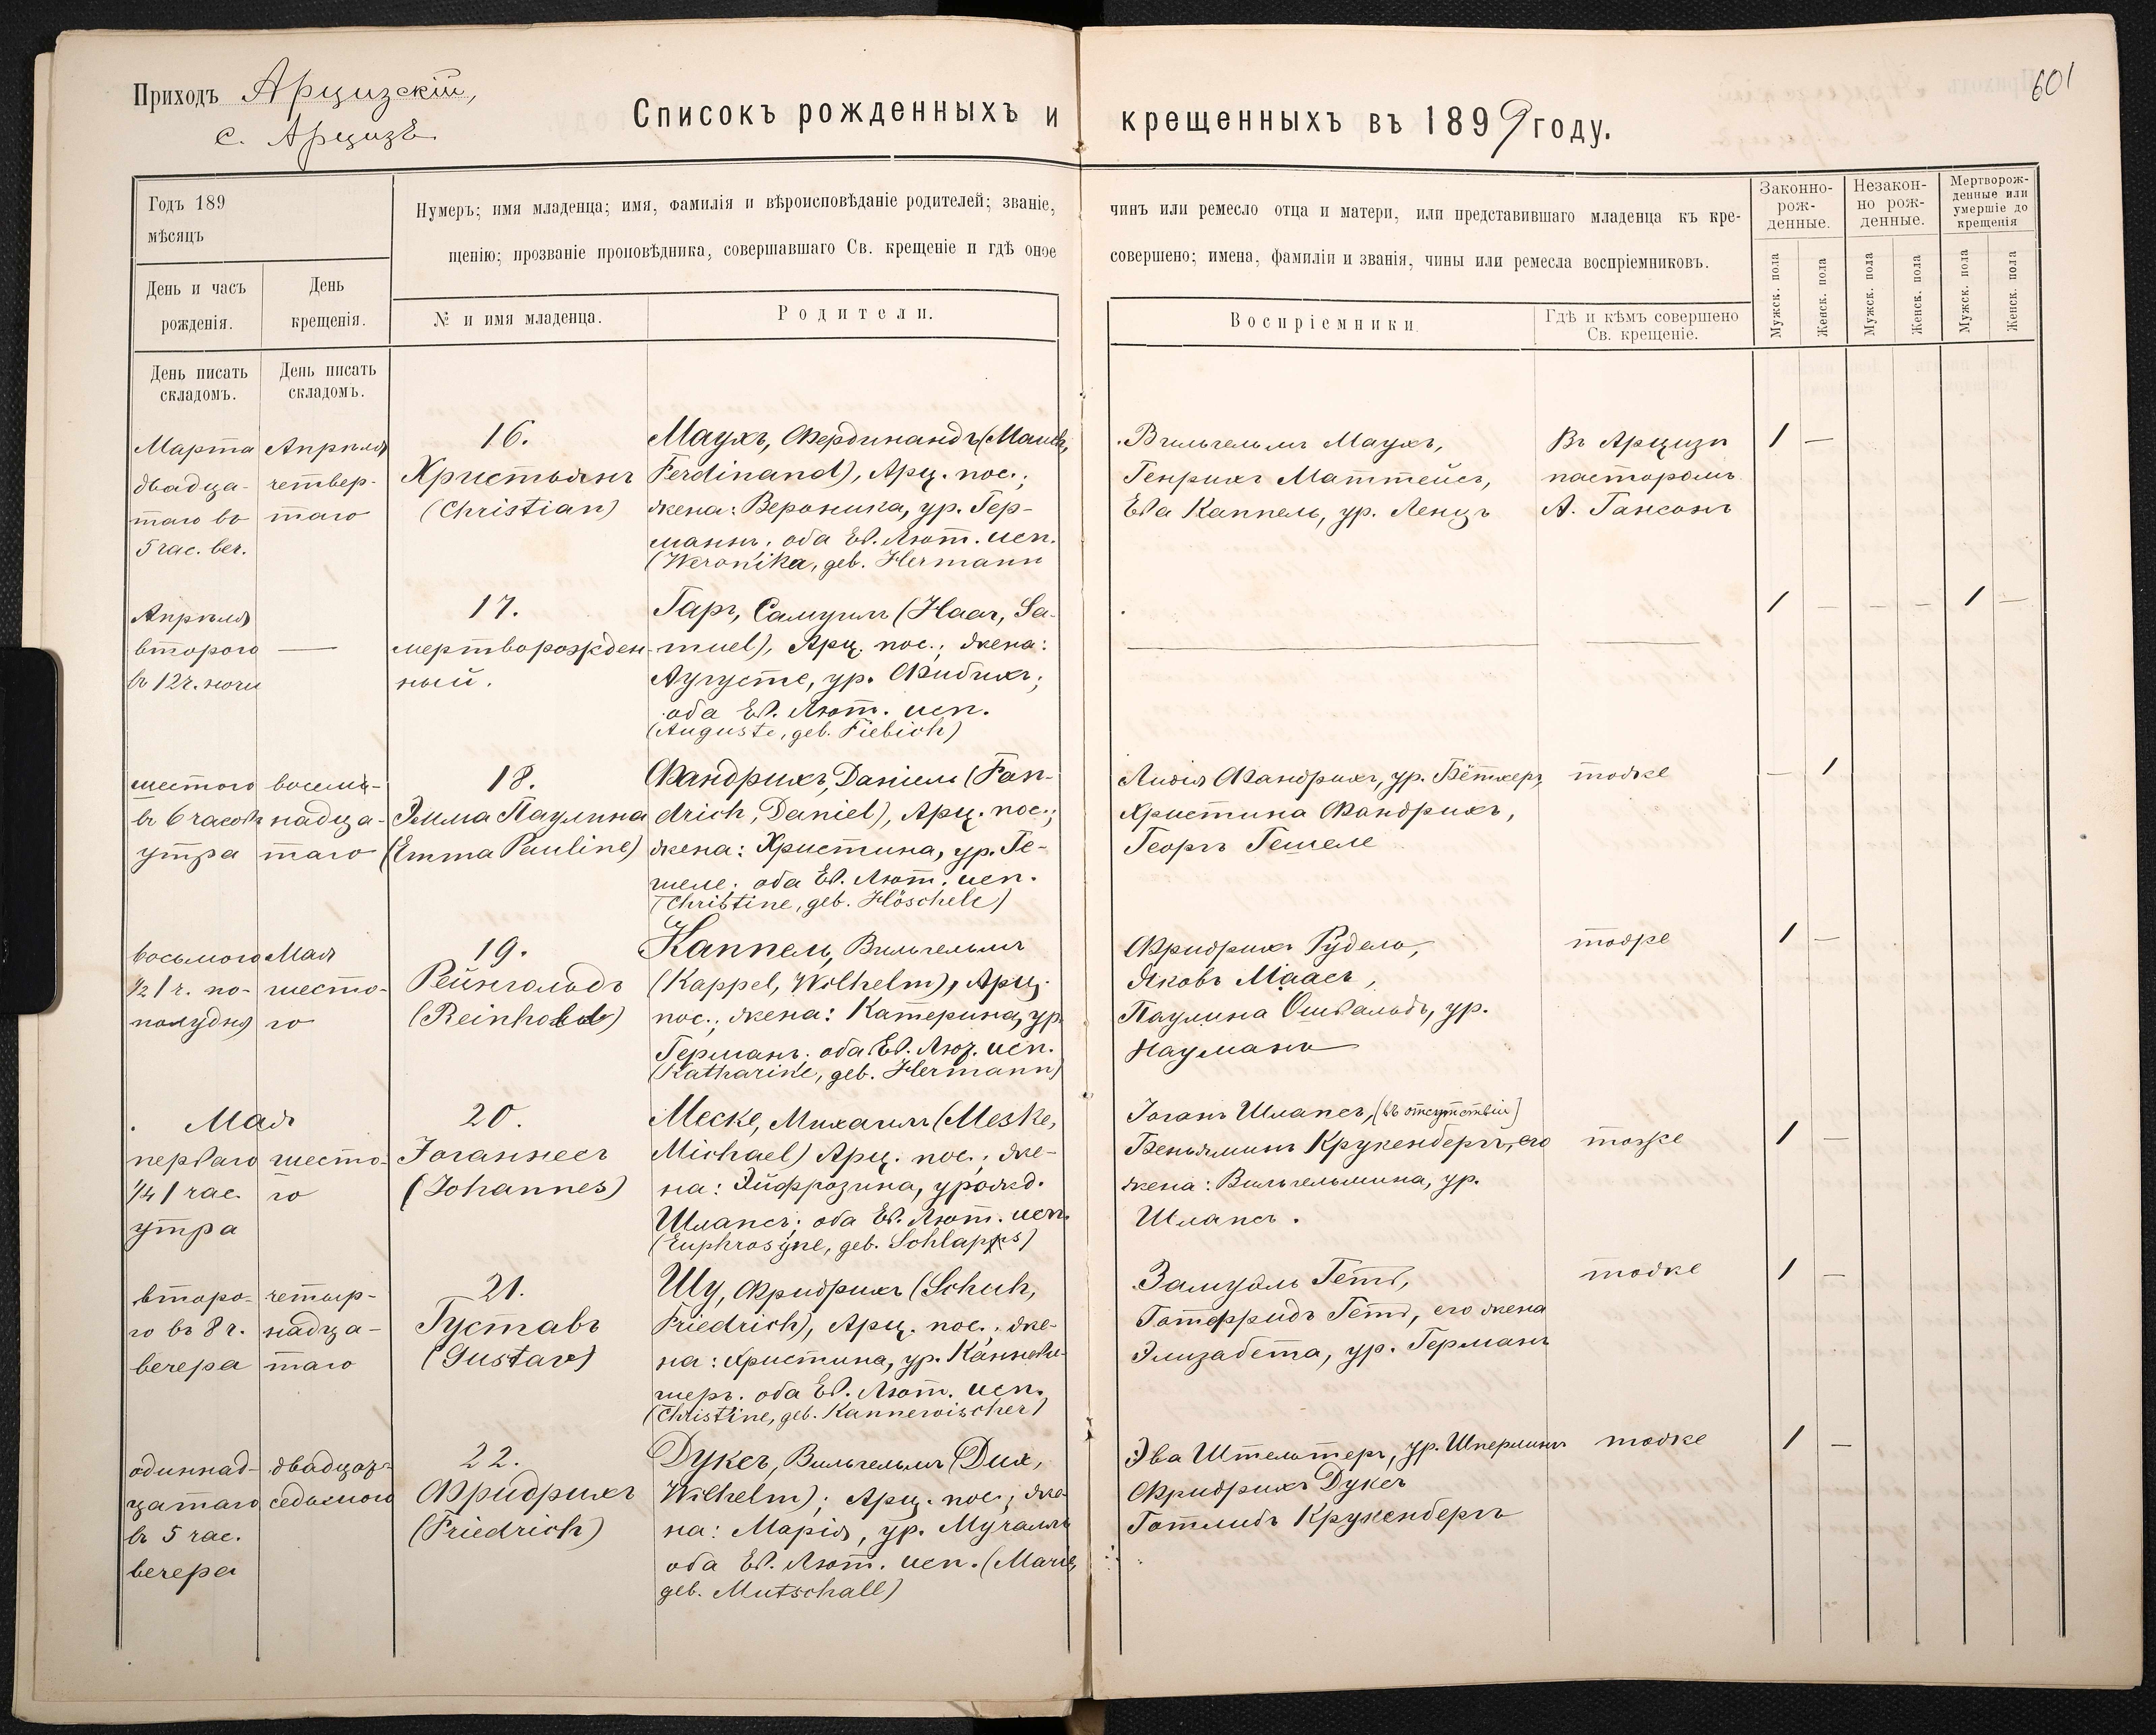 Приходъ Арцизскій,
с. Арцизъ
601
Списокъ рожденныхъ и крещенныхъ въ 1899 году.
Годъ 189
мѣсяцъ
День и часъ
рожденія.
День
крещенія.
День писать
складомъ.
День писать
складомъ.
Нумеръ; имя младенца; имя, фамилія и вѣроисповѣданіе родителей; званіе, чинъ или ремесло отца и матери, или представившаго младенца къ кре-
щенію; прозваніе проповѣдника, совершавшаго Св. крещеніе и гдѣ оное совершено; имена, фамиліи и званія, чины или ремесла воспріемниковъ.
№ и имя младенца.
Родители.
Воспріемники.
Гдѣ и кѣмъ совершено
Св. крещеніе.
Законно-
рож-
денные.
Незакон-
но рож-
денные.
Мертворож-
денные или
умершіе до
крещенія
Мужск. пола
Женск. пола
Мужск. пола
Женск. пола
Мужск. пола
Женск. пола
Марта
двадца-
таго въ
5 час. веч.
Апрѣля
четвер-
таго
16.
Христьянъ
(Christian)
Маухъ, Фердинандъ (Mauch,
Ferdinand), Арц. пос.;
жена: Вероника, ур. Гер-
маннъ; оба Ев. Лют. исп.
(Weronika, geb. Hermann
Вильгельмъ Маухъ,
Генрихъ Маттейсъ,
Ева Каппель, ур. Ленцъ
Въ Арцизѣ
пасторомъ
А. Гансонъ
1 —
Апрѣля
второго
въ 12 ч. ночи
—
17.
мертворожден-
ный.
Гаръ, Самуилъ (Haar, Sa-
muel), Арц. пос.; жена:
Аугусте, ур. Фибихъ;
оба Ев. Лют. исп.
(Auguste, geb. Fiebich)
1 — — — 1 —
шестого
въ 6 часовъ
утра
восемь-
надца-
таго
18.
Эмма Паулина
(Emma Pauline)
Фандрихъ, Даніилъ (Fan-
drich, Daniel), Арц. пос.;
жена: Христина, ур. Ге-
шеле; оба Ев. Лют. исп.
(Christine, geb. Höschele)
Лидія Фандрихъ, ур. Бётхеръ,
Христина Фандрихъ,
Георгъ Гешеле
тоже
— 1
восьмого
½ 1 ч. по-
полудня
Мая
шесто-
го
19.
Рейнгольдъ
(Reinhold)
Каппель, Вильгельмъ
(Kappel, Wilhelm), Арц.
пос.; жена: Катерина, ур.
Германъ; оба Ев. Лют. исп.
(Katharine, geb. Hermann)
Фридрихъ Рудель,
Яковъ Маасъ,
Паулина Ошвальдъ, ур.
Науманъ
тоже
1 —
Мая
перваго
¼ 1 час.
утра
шесто-
го
20.
Іоганнесъ
(Johannes)
Меске, Михаилъ (Meske,
Michael) Арц. пос.; же-
на: Эйфрозина, урожд.
Шлапсъ; оба Ев. Лют. исп.
(Euphrosyne, geb. Schlapps)
Іоганъ Шлапсъ, (въ отсутствіи)
Беньяминъ Крукенбергъ, его
жена: Вильгельмина, ур.
Шлапсъ.
тоже
1 —
второ-
го въ 8 ч.
вечера
четыр-
надца-
таго
21.
Густавъ
(Gustav)
Шу, Фридрихъ (Schuh,
Friedrich), Арц. пос.; же-
на: Христина, ур. Канневи-
шеръ; оба Ев. Лют. исп.
(Christine, geb. Kannewischer)
Замуэль Гетъ,
Готфридъ Гетъ, его жена
Элизабета, ур. Германъ
тоже
1 —
одиннад-
цатаго
въ 5 час.
вечера
двадцать
седьмого
22.
Фридрихъ
(Friedrich)
Дуксъ, Вильгельмъ (Dux,
Wilhelm); Арц. пос.; же-
на: Марія, ур. Мучалль
оба Ев. Лют. исп. (Marie,
geb. Mutschall)
Эва Штельтеръ, ур. Шперлингъ
Фридрихъ Дуксъ
Готлибъ Крукенбергъ
тоже
1 —